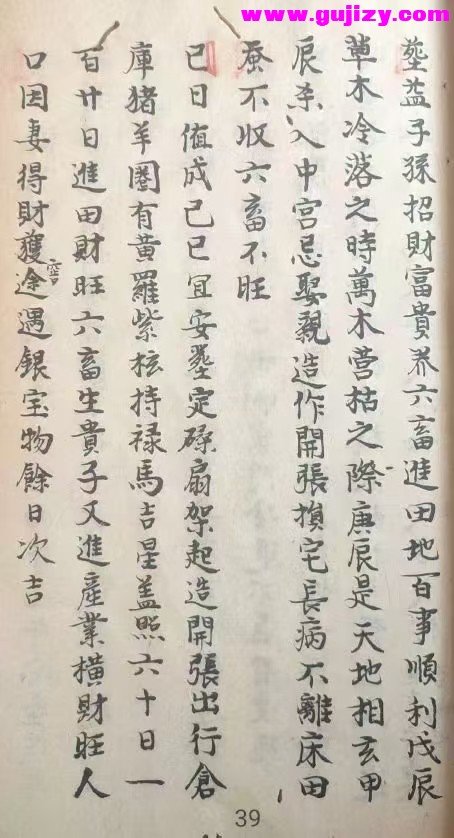 www.gujizy.com
塟益子孫招財富貴养六畜進田地百事順利戊辰
草木冷落之時萬木营枯之際庚辰是天地相玄甲
辰杀入中宫忌娶親造作開張損宅長病不離床田
蚕不收六畜不旺
巳日值成己巳宜安塟定磉扇架起造開張出行倉
庫猪羊圈有黄羅紫桉持禄馬吉星盖照六十日一
百廿日進田財旺六畜生貴子又進産業横財旺人
口因妻得財獲途遇銀宝物餘日次吉
窖
39